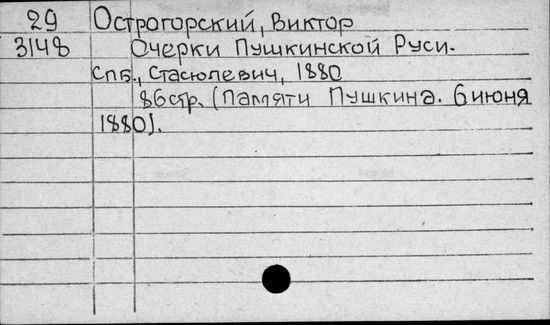 29 Острогорский, Виктор
3148 Очерки Пушкинской Руси.
Спб., Стасюлевич, 1880
86стр. (Памяти Пушкина. 6 июня
1880).